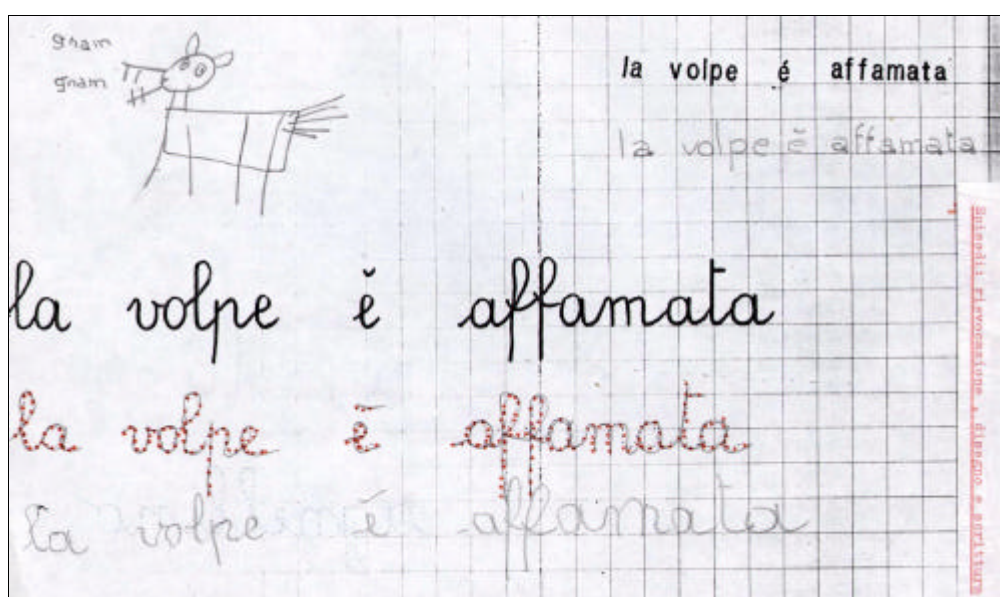 gnam
gnam
la volpe é affamata
la volpe è affamata
la volpe è affamata
la volpe è affamata
la volpe è affamata
rievocazione, disegno e scrittura